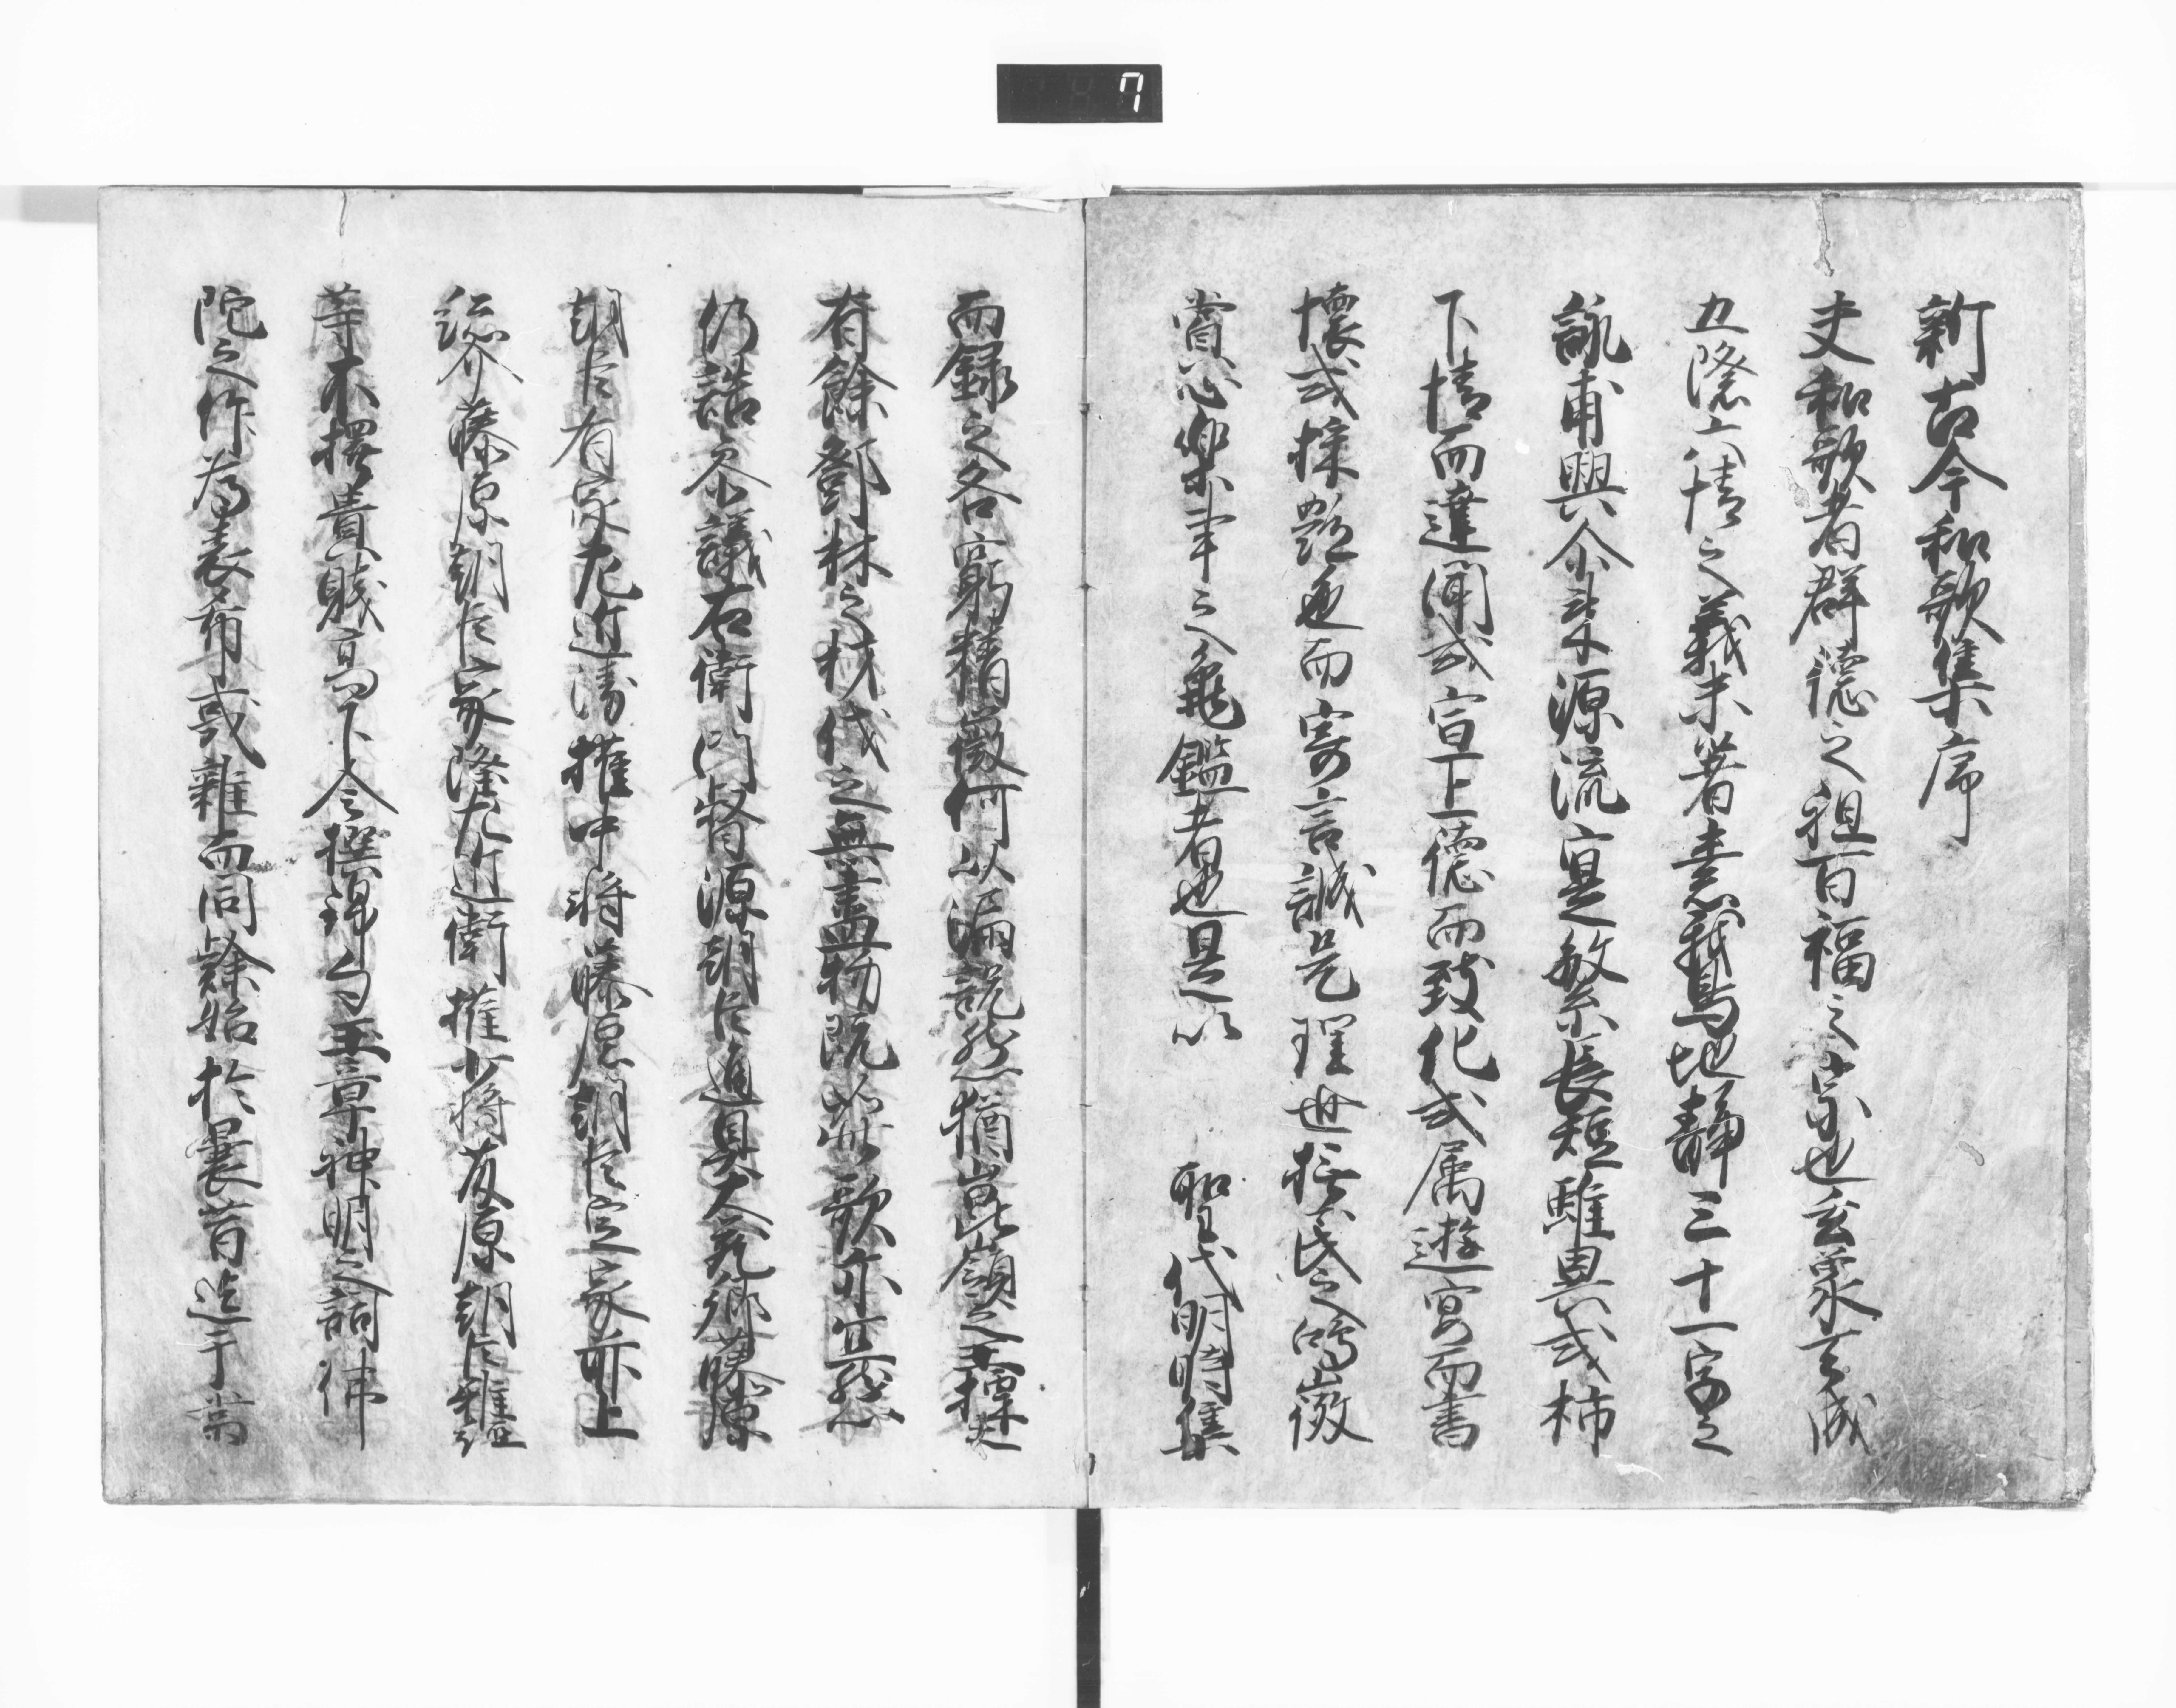 7
新古今和歌集序
夫和歌者群徳之祖百福之宗也玄象天成
五際六情之義未著素鵝地静三十一字之
詠甫興尒来源流寔繁長短雖異或抒
下情而達聞或宣上徳而致化或属遊宴而書
懐或採艶色而寄言誠是理世撫民之鴻徽
賞心楽事之亀鑑者也是以　聖代明時集
而録之各窮精微何以漏脱然猶崑嶺之玉採之
有餘鄧林之材伐之無盡物既如此歌亦宜然
仍詔参議右衛門督源朝臣通具大蔵卿藤原
朝臣有家左近衛権中将藤原朝臣定家前上
総介藤原朝臣家隆左近衛権少将藤原朝臣雅経
等不擇貴賤高下令撰錦句玉章神明之詞佛
陀之作為表希夷雑而同隷始於曩昔迄于当